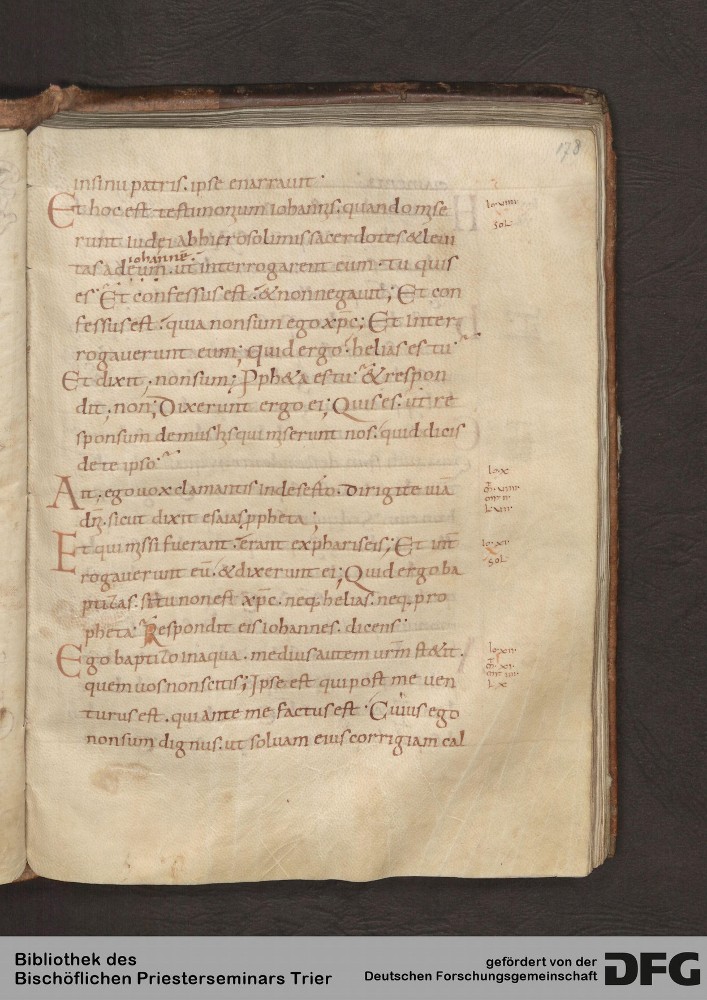 178
insinu patris. ipse enarravit.
Et hoc est testimonium iohannis. quando mise
runt iudei abhierosolimis sacerdotes & levi
iohanne.
tas ad eum. ut interrogarent eum. tu quis
es. Et confessus est. & non negavit; Et con
fessus est. quia non sum ego xpc; Et inter
rogaverunt eum; Quid ergo. helias es tu
Et dixit. non sum; Proph&a es tu. & respon
dit. non; Dixerunt ergo ei; Quis es. ut re
sponsum demus his qui miserunt nos. quid dicis
de te ipso
Ait, ego vox clamantis in deserto. Dirigite viā
dñi. sicut dixit esaias propheta;
Et qui missi fuerant. erant ex phariseis; Et int
rogaverunt eū. & dixerunt ei; Quid ergo ba
ptizas. si tu non est xpc. neq. helias. neq. pro
pheta. Respondit eis iohannes. dicens.
Ego baptizo in aqua. medius autem vrm st&it.
quem vos non scitis; Ipse est qui post me ven
turus est. qui ante me factus est. Cuius ego
non sum dignus. ut solvam eius corrigiam cal
io. viiii
sol.
io. x
io. xi
sol
io. xii
Bibliothek des
Bischöflichen Priesterseminars Trier
gefördert von der
Deutschen Forschungsgemeinschaft
DFG